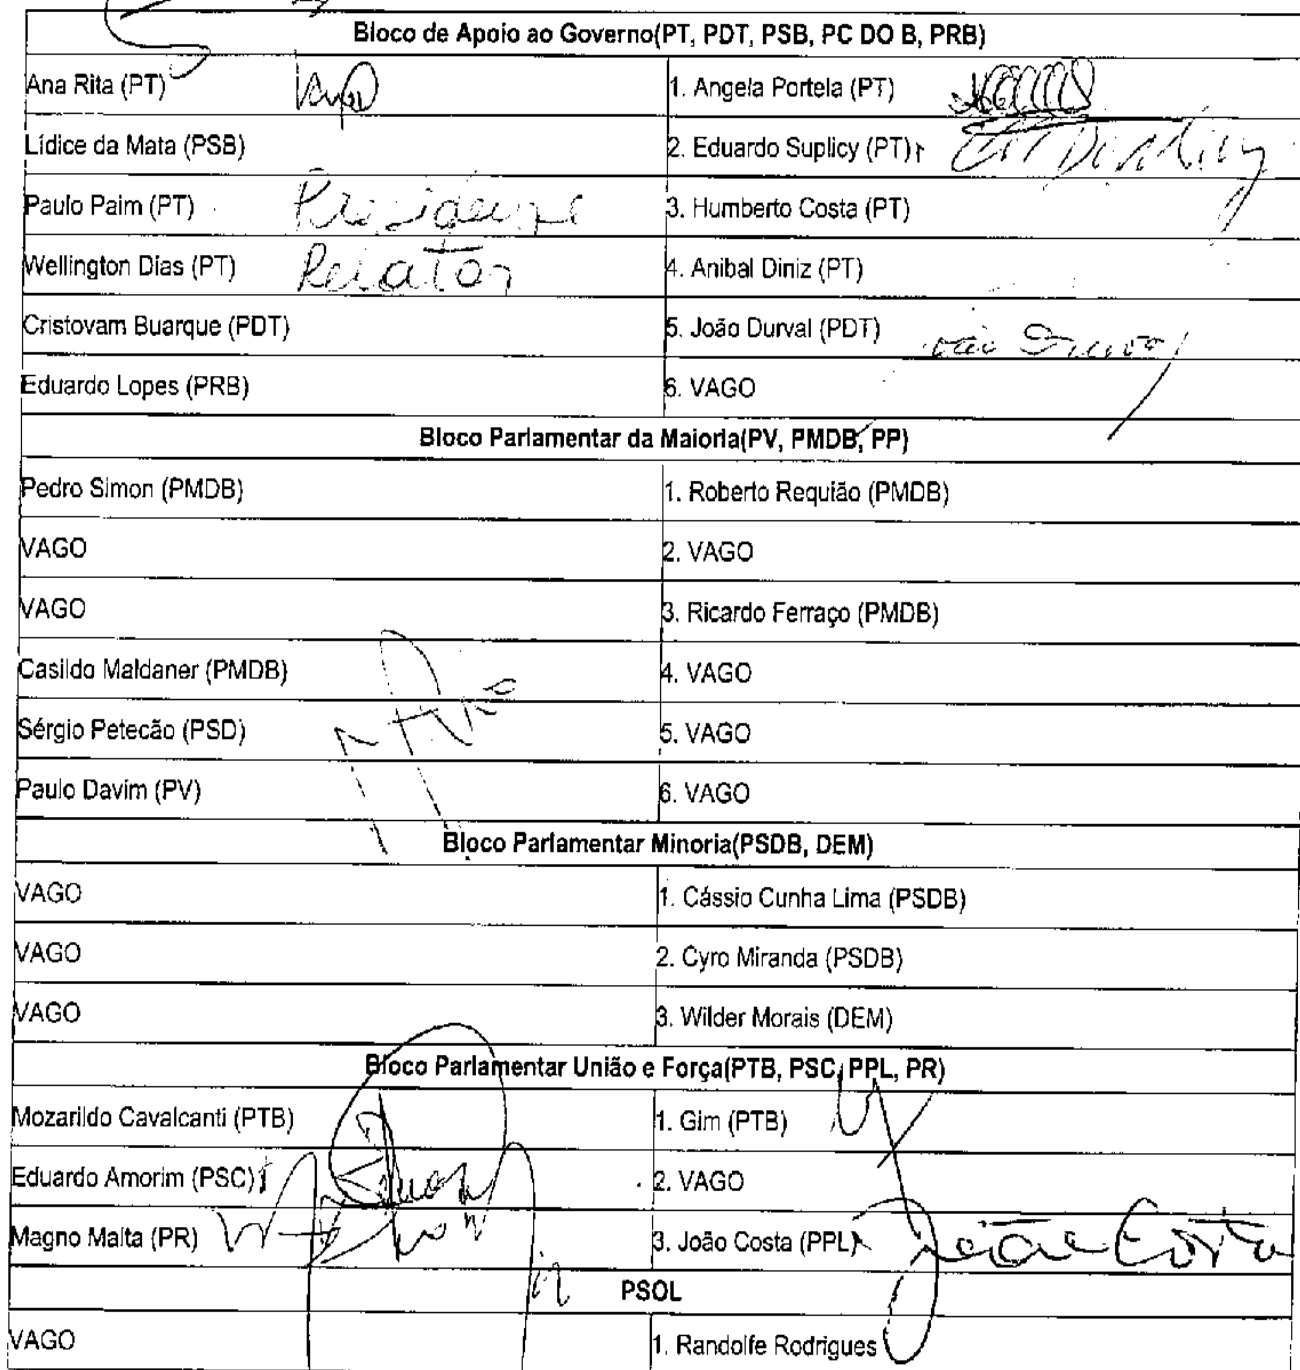 Bloco de Apoio ao Governo(PT, PDT, PSB, PC DO B, PRB)
Ana Rita (PT) 1. Angela Portela (PT)
Lídice da Mata (PSB) 2. Eduardo Suplicy (PT)
Paulo Paim (PT) Presidente 3. Humberto Costa (PT)
Wellington Dias (PT) Relator 4. Anibal Diniz (PT)
Cristovam Buarque (PDT) 5. João Durval (PDT)
Eduardo Lopes (PRB) 6. VAGO
Bloco Parlamentar da Maioria(PV, PMDB, PP)
Pedro Simon (PMDB) 1. Roberto Requião (PMDB)
VAGO 2. VAGO
VAGO 3. Ricardo Ferraço (PMDB)
Casildo Maldaner (PMDB) 4. VAGO
Sérgio Petecão (PSD) 5. VAGO
Paulo Davim (PV) 6. VAGO
Bloco Parlamentar Minoria(PSDB, DEM)
VAGO 1. Cássio Cunha Lima (PSDB)
VAGO 2. Cyro Miranda (PSDB)
VAGO 3. Wilder Morais (DEM)
Bloco Parlamentar União e Força(PTB, PSC, PPL, PR)
Mozarildo Cavalcanti (PTB) 1. Gim (PTB)
Eduardo Amorim (PSC) 2. VAGO
Magno Malta (PR) 3. João Costa (PPL) João Costa
PSOL
VAGO 1. Randolfe Rodrigues